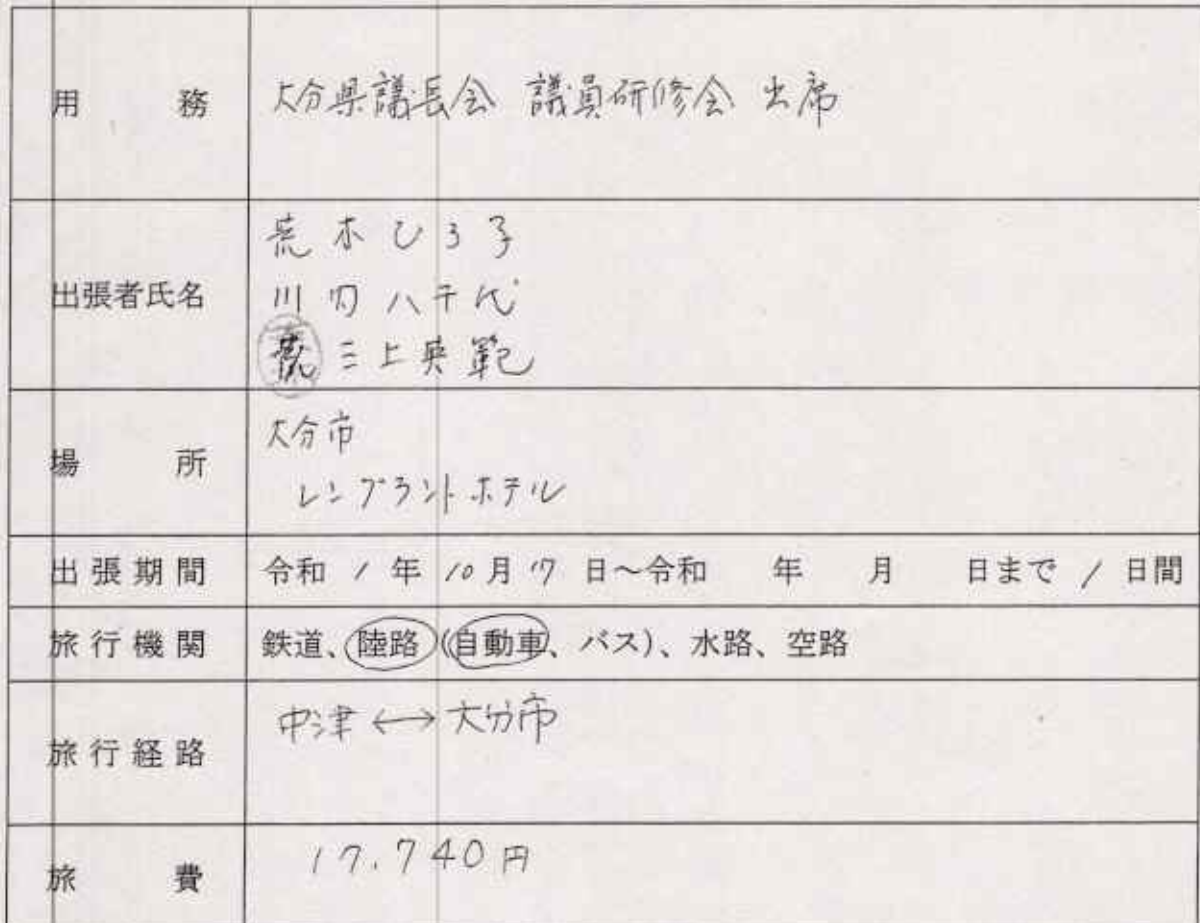 用務 大分県議長会 議員研修会 出席
出張者氏名 荒木ひろ子
川内八千代
三上英範
場所 大分市
レンブラントホテル
出張期間 令和 1 年 10 月 17 日~令和 年 月 日まで 1 日間
旅行機関 鉄道、陸路(自動車、バス)、水路、空路
旅行経路 中津 ↔ 大分市
旅費 17.740円